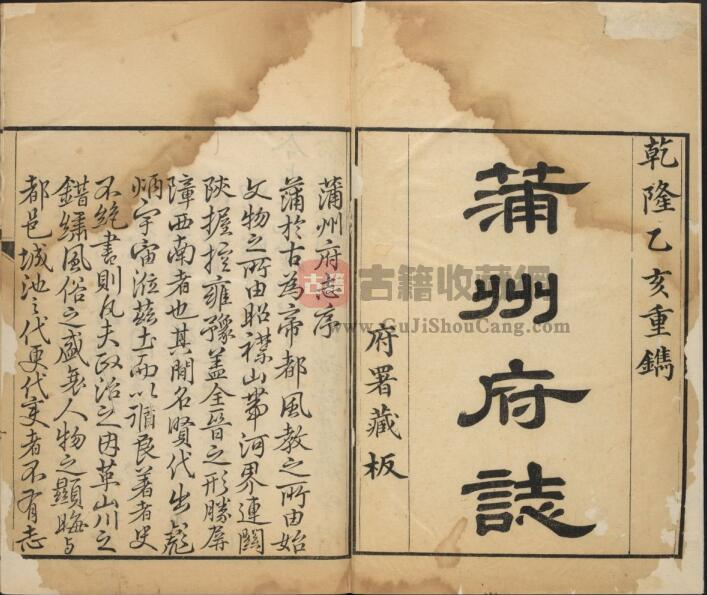 乾隆乙亥重鐫
蒲州府誌
府署藏板
蒲州府志序
蒲於古為帝都風教之所由始
文物之所由昭襟山帶河界連關
陝握控雍豫蓋全晉之形勝屏
障西南者也其間名賢代出彪
炳宇宙涖茲土而以循良著者史
不絕書則凡夫政治之因革山川之
錯繡風俗之盛衰人物之顯晦与
都邑城池之代更代変者不有志
古籍
古籍收藏網
www.GuJiShouCang.com